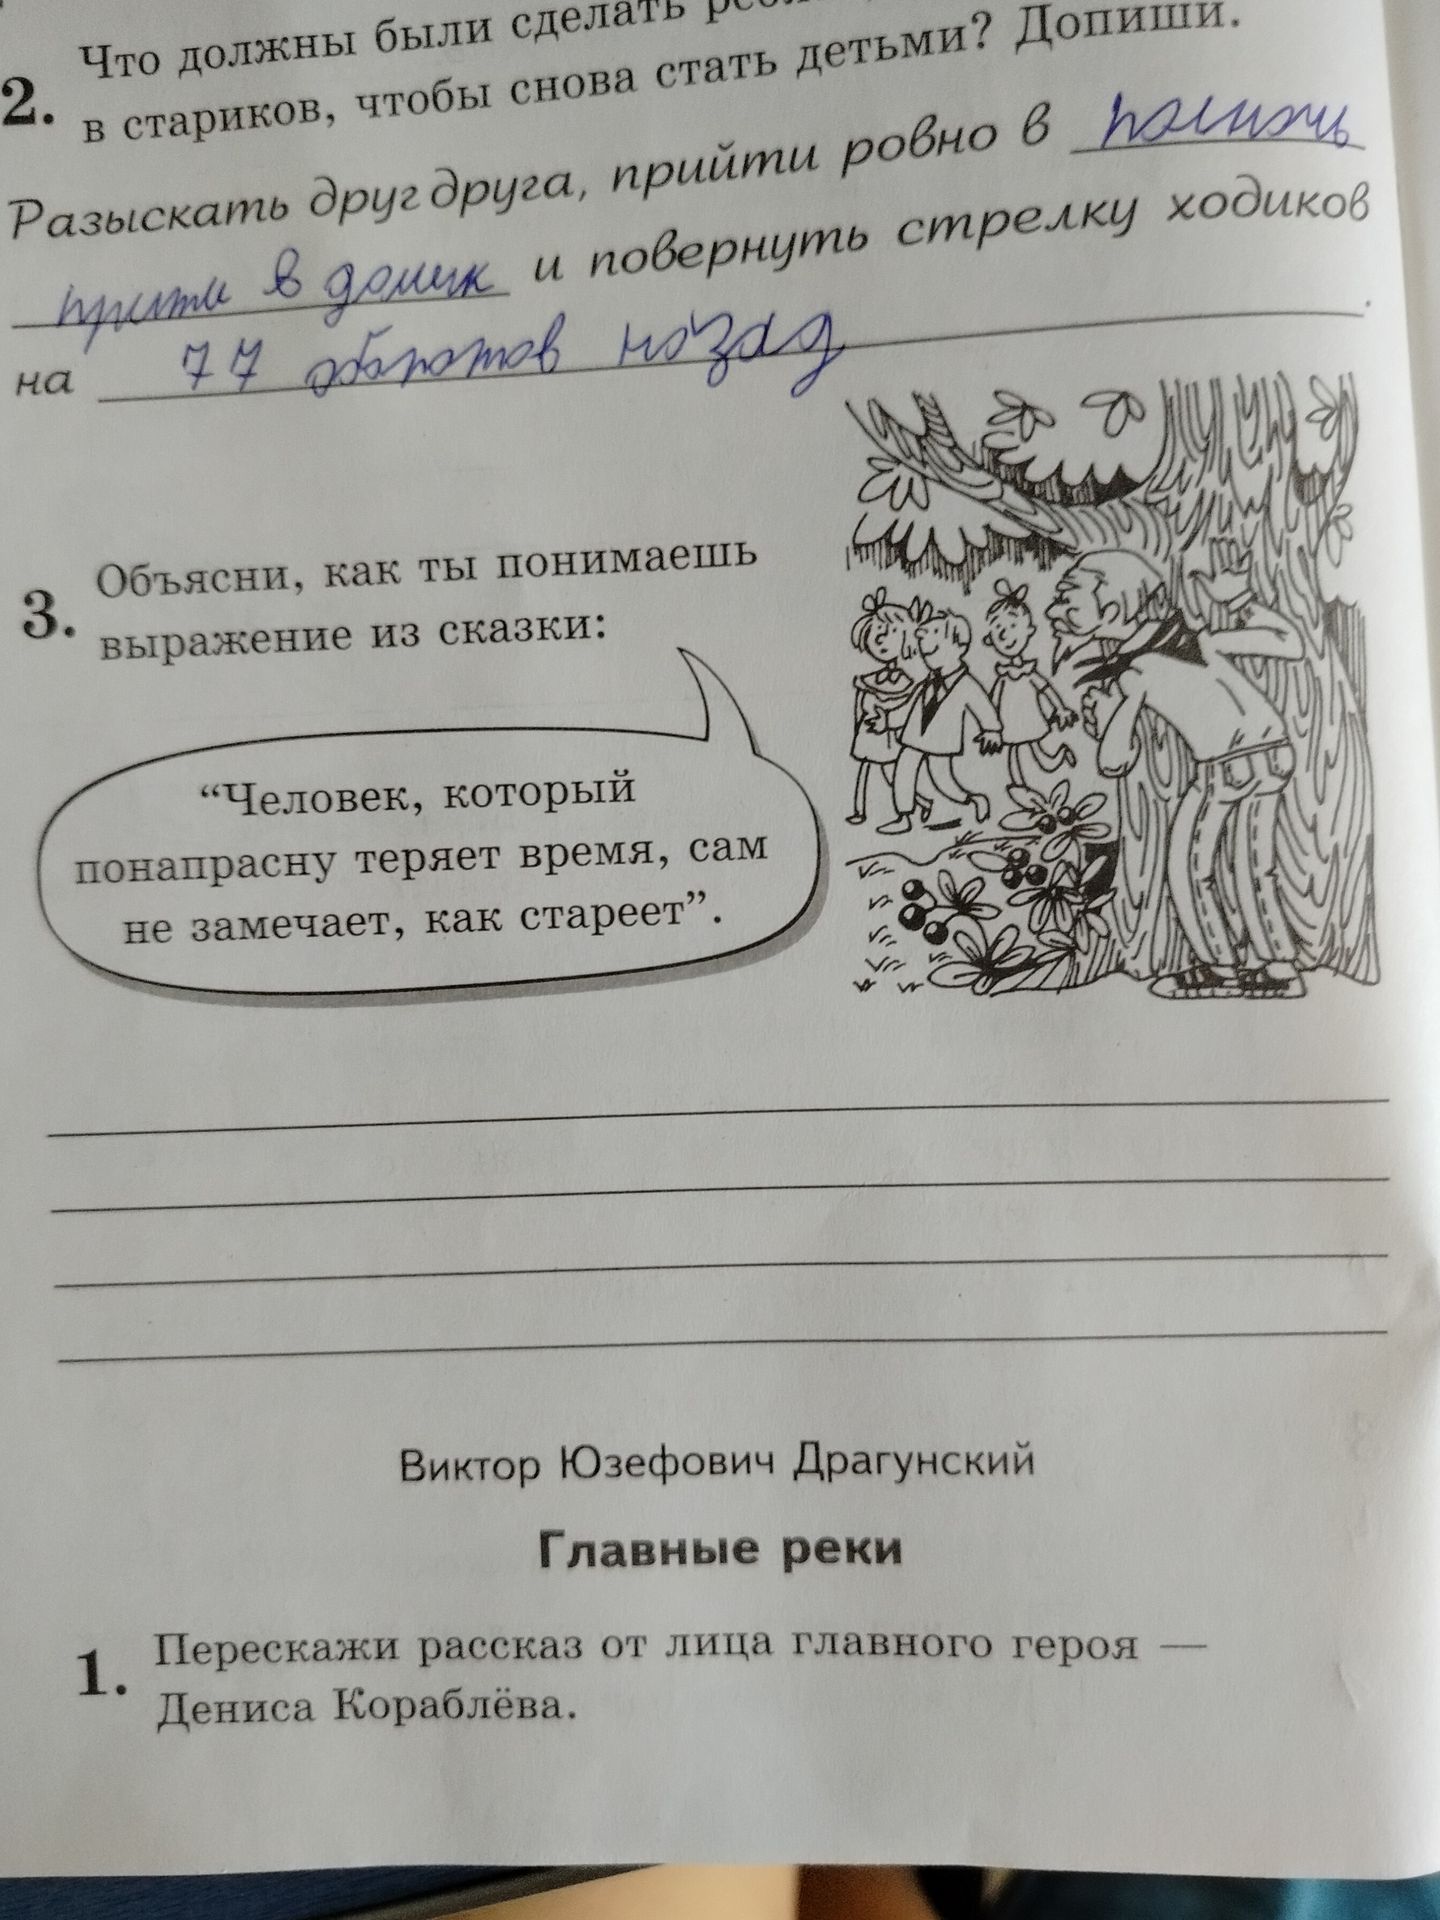 2. Что должны были сделать
в стариков, чтобы снова стать детьми? Допиши.
Разыскать друг друга, прийти ровно в полночь
прити в домик и повернуть стрелку ходиков
на 77 оборотов назад.
3. Объясни, как ты понимаешь
выражение из сказки:
“Человек, который
понапрасну теряет время, сам
не замечает, как стареет”.
Виктор Юзефович Драгунский
Главные реки
1. Перескажи рассказ от лица главного героя —
Дениса Кораблёва.